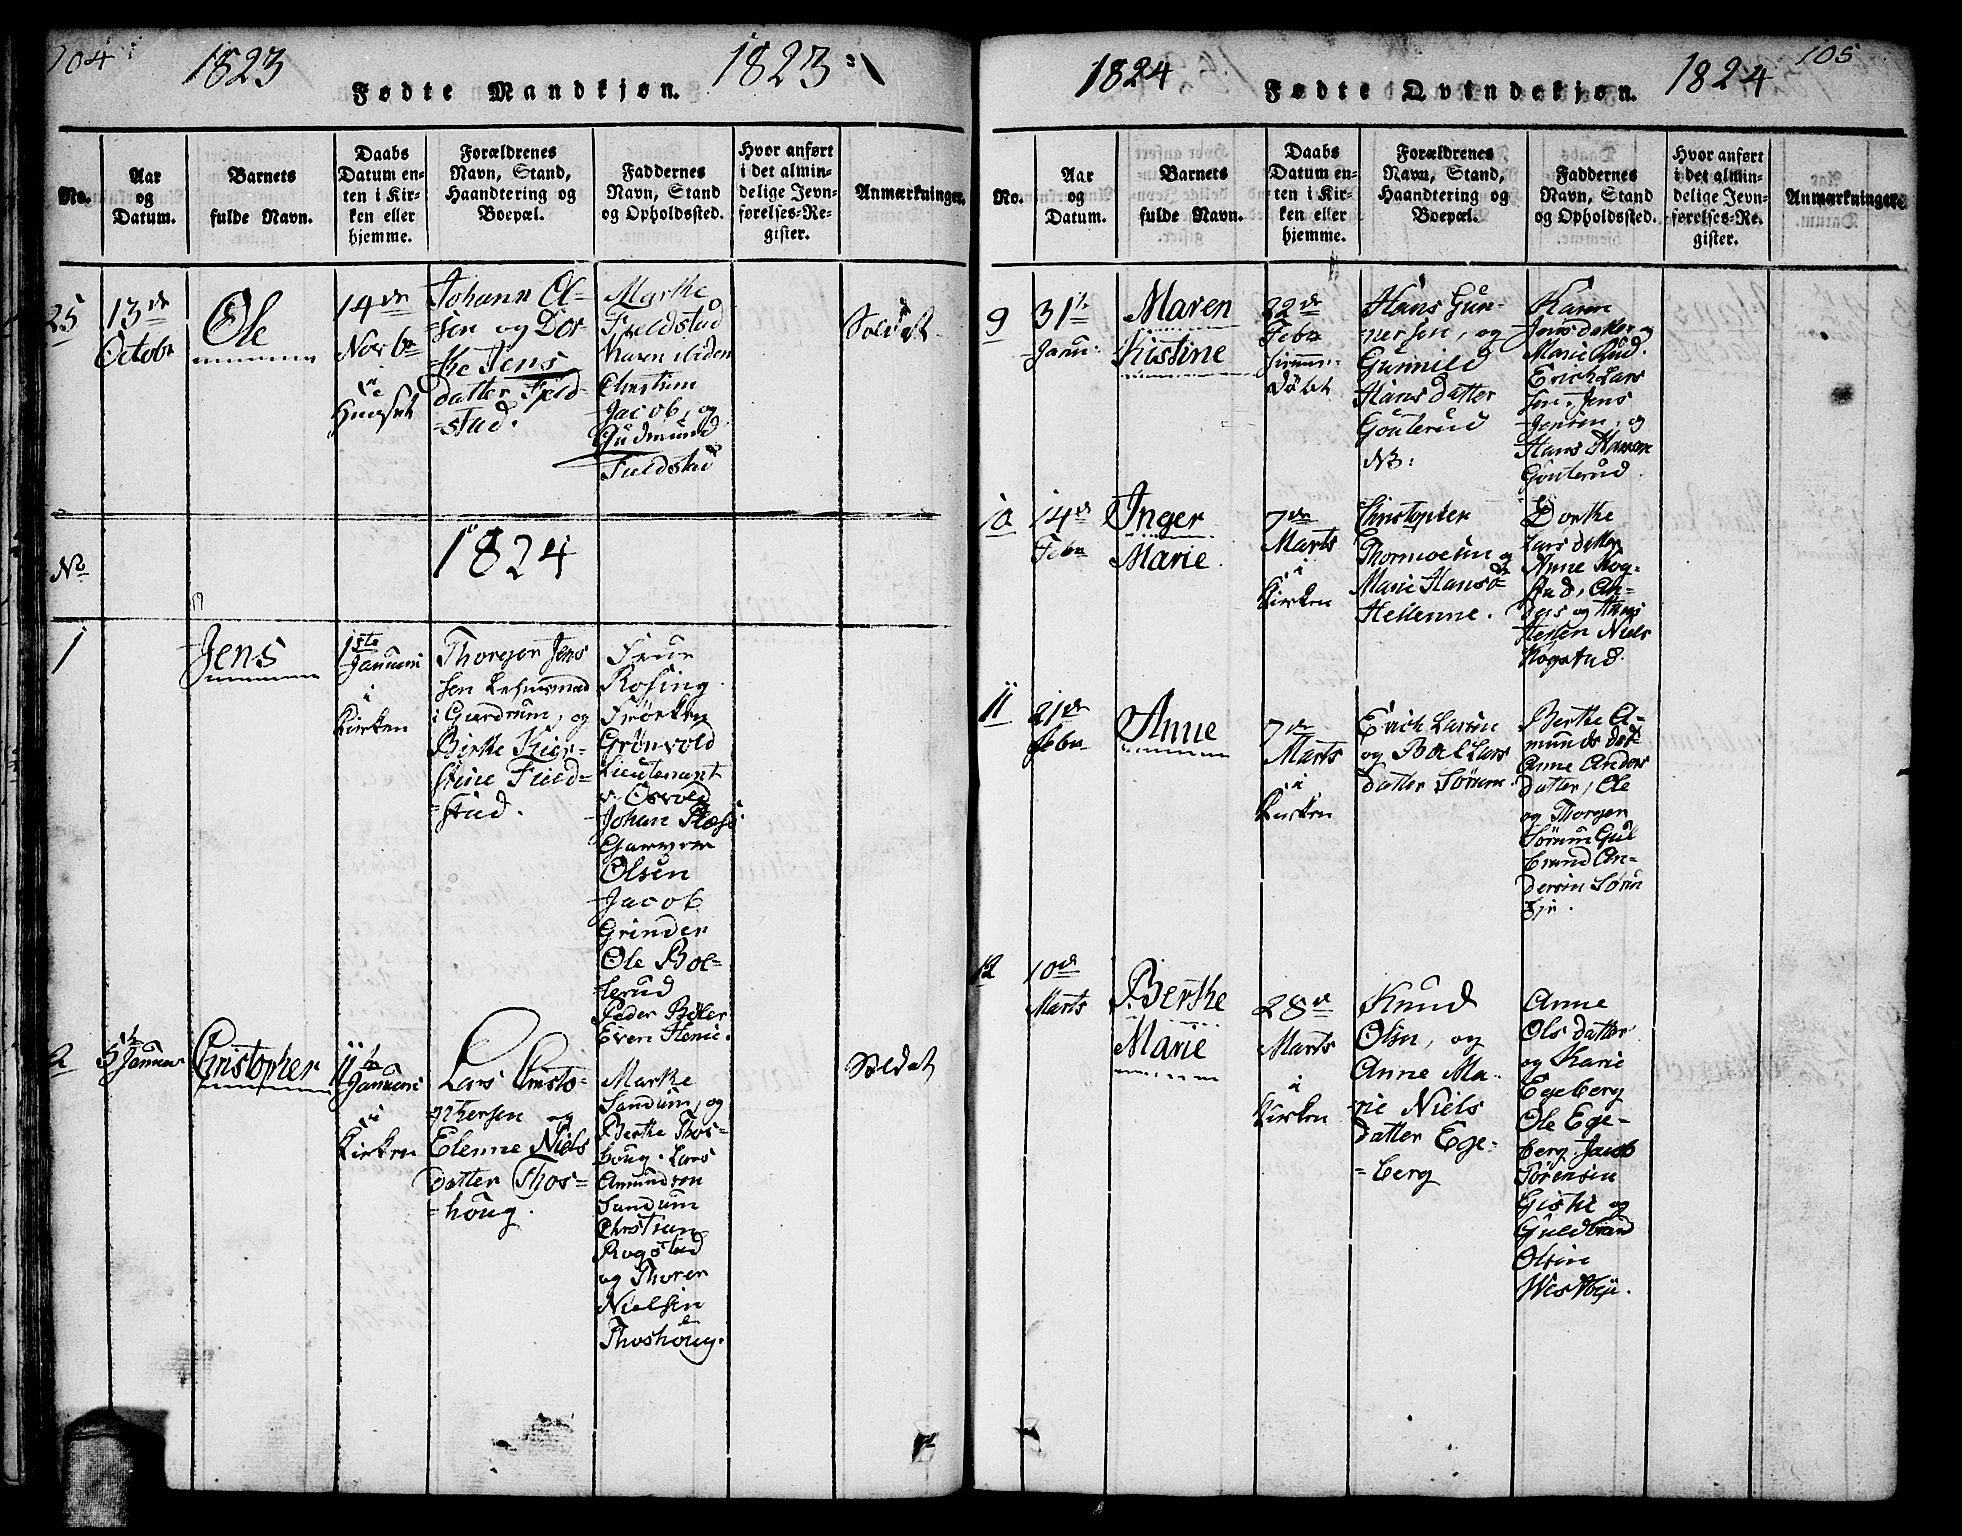 104
1823
Fødte Mandkjøn.
1823
No.
Aar
og
Datum.
Barnets
fulde Navn.
Daabs
Datum en-
ten i Kir-
ken eller
hjemme.
Forældrenes
Navn, Stand,
Haandtering og
Boepæl.
Faddernes
Navn, Stand
og Opholdssted.
Hvor anført
i det almin-
delige Jevn-
førelses-Re-
gister.
Anmærkninger.
25
13de
Octobr
Ole
14de
Novbr
i
Huuset
Johann Ol-
sen og Dor-
the Jens
datter Fjeld-
stad.
Marthe
Fjeldstad
Maren
Christian
Jacob, og
Gudmund
Fieldstad
Soldat
No
1824
1
Jens
1ste
Januari
i
Kirken
Thorger Jens
sen
i Gierdrum, og
Birthe Kier-
stine Field-
stad.
Frue
Rosing
Frøken
Grønvold
Lieutenant
v. Osvold
Johan
Olsen
Jacob
Grinder
Ole Bol-
lerud
Peder Bøler
Even
2
5te Januar
Christopher
11te
Januari
i
Kirken
Lars Christo-
phersen og
Elenne Niels
datter Thos-
houg.
Marthe
Sandum, og
Berthe Thos-
houg. Lars
Amundsen
Sandum
Christian
Rogstad
og Thorer
Nielsen
Thoshoug.
Soldat
105
1824
Fødte Qvindekjøn.
1824
No.
Aar
og
Datum.
Barnets
fulde Navn.
Daabs
Datum en-
ten i Kir-
ken eller
hjemme.
Forældrenes
Navn, Stand,
Haandtering og
Boepæl.
Faddernes
Navn, Stand
og Opholdssted.
Hvor anført
i det almin-
delige Jevn-
førelses-Re-
gister.
Anmærkninger.
9
31te
Janu:
Maren
Kistine
22de
Febr
hiemme-
døbt
Hans Gun-
nersen, og
Gunnild
Hans datter
Gouterud
NB:
Karen
Jens datter og
Marie Rud.
Erich Lars
sen. Jens
Jensen, og
Hans Hansen
Gouterud.
10
14de
Febr
Inger
Marie.
7de
Marts
i
Kirken
Christopher
Thormoesen og
Marie Hansd
Hellenne.
Dorthe
Lars datter
Anne Kog-
stad, An-
ders og Hans
Hellen Niels
Kogstad.
11
21de
Febr
Anne
7de
Marts
i
Kirken
Erich Larsen
og Boel Lars
datter Sørum.
Berthe A-
munds dat-
Anne Anders
datter, Ole
og Thorger
Sørum Gul
brand An-
dersen Sørum
Eje.
12
10de
Marts
Berthe
Marie
28de
Marts
i
Kirken
Knud
Olsen, og
Anne Ma-
rie Niels
datter Ege-
berg
Anne
Ols datter
og Karie
Egeberg
Ole Ege-
berg. Jacob
Sørensen
Giskie og
Guldbrand
Olsen
Westbye.